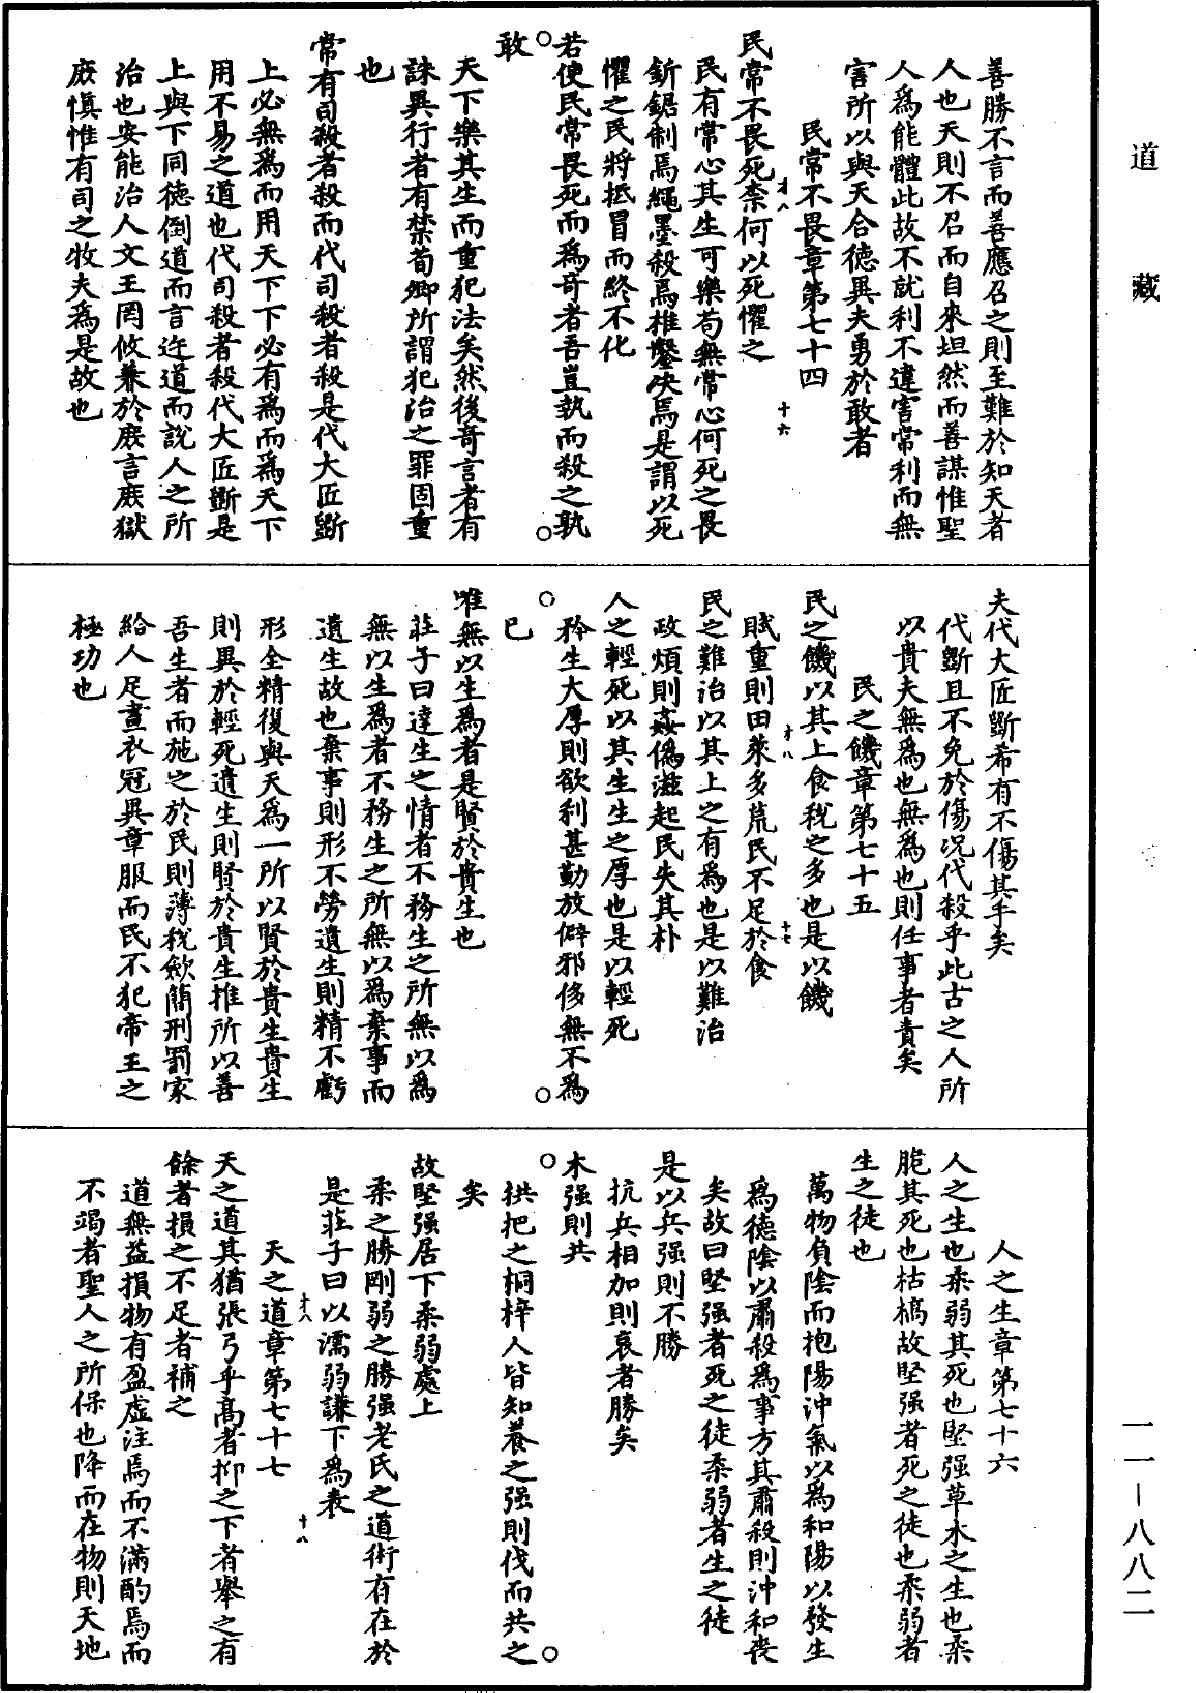 道藏
善勝不言而善應召之則至難於知天者
人也天則不召而自來坦然而善謀惟聖
人爲能體此故不就利不違害常利而無
害所以與天合德異夫勇於敢者
民常不畏章第七十四
才八
十六
民常不畏死柰何以死懼之
民有常心其生可樂苟無常心何死之畏
釿鋸制焉繩墨殺焉椎鑿决焉是謂以死
懼之民將抵冒而終不化
若使民常畏死而爲奇者吾豈執而殺之孰
敢
天下樂其生而重犯法矣然後奇言者有
誅異行者有禁荀卿所謂犯治之罪固重
也
常有司殺者殺而代司殺者殺是代大匠斲
上必無爲而用天下下必有爲而爲天下
用不易之道也代司殺者殺代大匠斲是
上與下同德倒道而言迕道而說人之所
治也安能治人文王罔攸兼於庶言庶獄
庶慎惟有司之牧夫爲是故也
夫代大匠斲希有不傷其手矣
代斲且不免於傷况代殺乎此古之人所
以貴夫無爲也無爲也則任事者責矣
民之饑章第七十五
民之饑以其上食稅之多也是以饑
才八
十七
賦重則田萊多荒民不足於食
民之難治以其上之有爲也是以難治
政煩則姦僞滋起民失其朴
人之輕死以其生生之厚也是以輕死
矜生大厚則欲利甚勤放僻邪侈無不爲
已
唯無以生爲者是賢於貴生也
莊子曰達生之情者不務生之所無以爲
無以生爲者不務生之所無以爲棄事而
遺生故也棄事則形不勞遺生則精不虧
形全精復與天爲一所以賢於貴生貴生
則異於輕死遺生則賢於貴生推所以善
吾生者而施之於民則薄稅歛簡刑罰家
給人足畫衣冠異章服而民不犯帝王之
極功也
人之生章第七十六
人之生也柔弱其死也堅强草木之生也柔
脆其死也枯槁故堅强者死之徒也柔弱者
生之徒也
萬物負陰而抱陽沖氣以爲和陽以發生
爲德陰以肅殺爲事方其肅殺則沖和喪
矣故曰堅强者死之徒柔弱者生之徒
是以兵强則不勝
抗兵相加則哀者勝矣
木强則共
拱把之桐梓人皆知養之强則伐而共之
矣
故堅强居下柔弱處上
柔之勝剛弱之勝强老氏之道術有在於
是莊子曰以濡弱謙下爲表
天之道章第七十七
才八
十八
天之道其猶張弓乎高者抑之下者舉之有
餘者損之不足者補之
道無益損物有盈虛注焉而不滿酌焉而
不竭者聖人之所保也降而在物則天地
一一－八八二